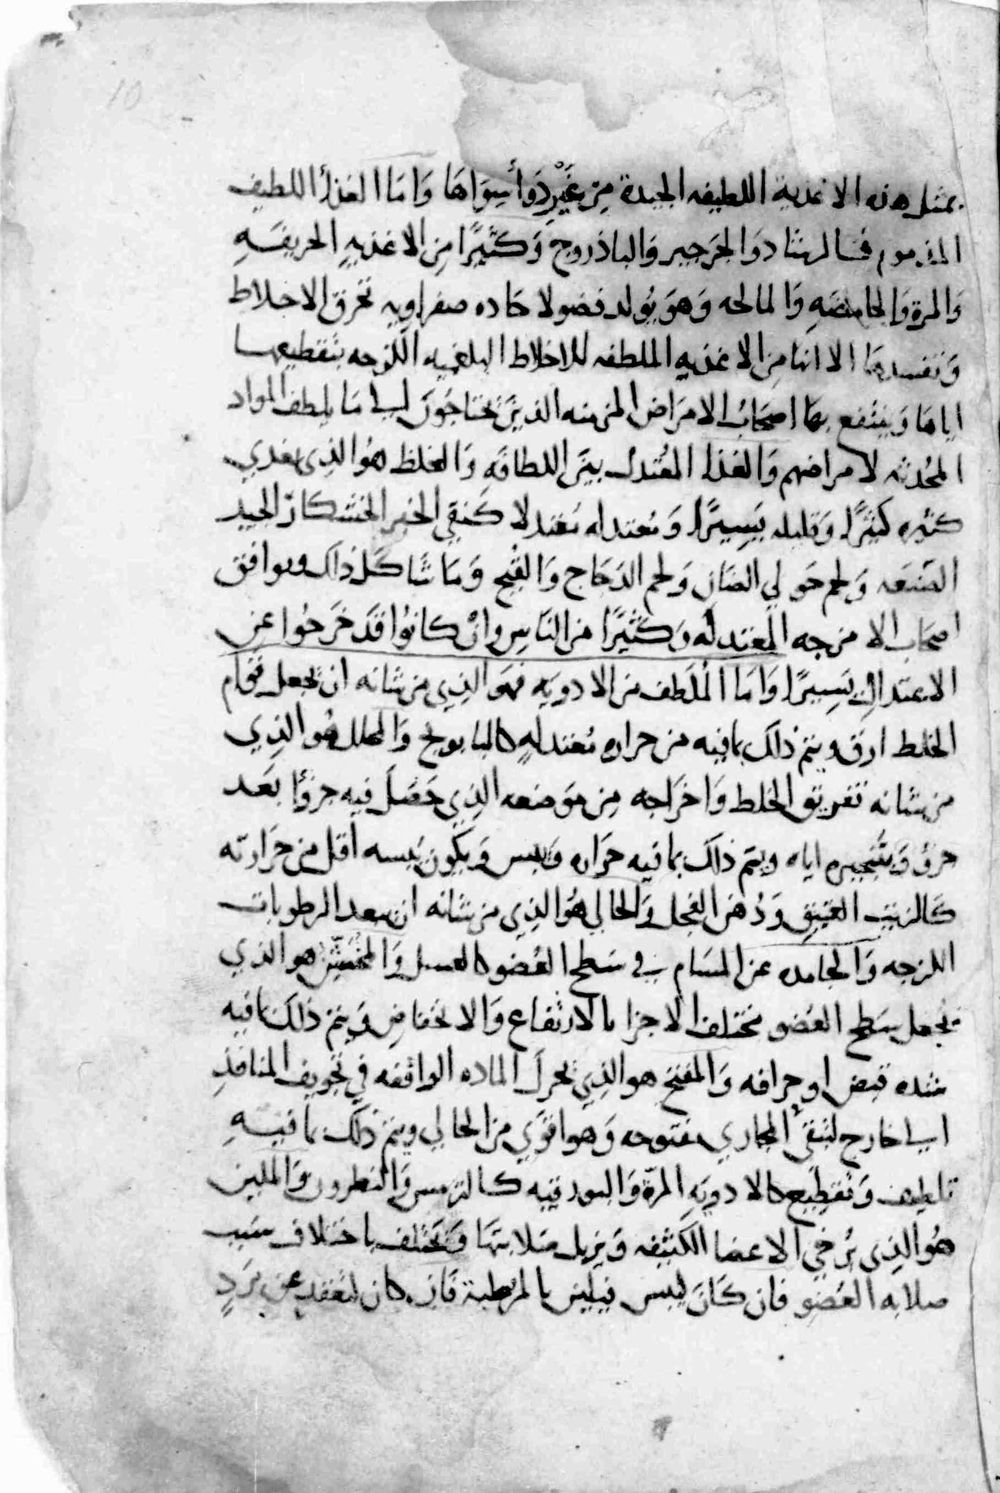 10
بمثل هذه الاغذية اللطيفه الجيدة من غَيْرِ دَوأ سِوَاهَا وَامَا الغذأ اللطيف
المذموم فكالرشاد وَالجرَجير وَالباذروج وَكثيرًا مِن الاغذيهِ الحريفَهِ
وَالمرة وَالحامضَهِ وَالمالحه وَهوَ يُولد فضولا حَاده صفراويه تحرق الاخلاط
وَتفسدهَا الا انها مِن الاغذيه الملطفه للاخلاط البلغميه اللزجه بتقطيعها
اياهَا وَينتفع بهَا اصحَابُ الامرَاض المزمنه الذين يَحتاجُونَ الى مَا يلطف المواد
المحُدثه لامراضهم وَالغذا المعُتدل بيَن اللطافَه وَالغلظ هُوَ الذِى يغذي
كثيره كثيرًا وَقليله يَسِيرًا وَمُعتدله مُعتدلا كَنقي الخبز الخشكار الجيد
الصَنعَه وَلحم حَولي الضَان وَلحم الدَجَاج وَالقَبج وَمَا شَاكل ذلك ويوافق
اصحَاب الامزجه المُعتدلهُ وَكثيرًا من النَاس وَانْ كانوُا قدَ خرَجُوا عن
الاعتدالِ يَسِيرًا وَامَا المُلَطف من الادويَه فهوَ الذِي من شانه ان يجعل قَوام
الخلط ارَق ويتم ذلكَ بمَا فيه من حراره مُعتدلهٍ كالبابونج وَالمحلل هُوَ الذِي
من شانه تفريق الخلط وَاخرَاجه مِن مَوضعه الذِي حَصَلَ فيه جزؤا بَعد
جزؤ وَتبخيره اياه ويتم ذلكَ بمَا فيه حرَاره وَيبس وَيكون يُبسه اقل من حَرَارته
كَالزيتِ العَتيق وَدُهن الفجل وَالجالي هُوَ الذِي من شانه ان يبعد الرطوبات
اللزجه وَالجامده عن المسَام في سَطح العُضو كالعسل وَالمُخَشِّن هو الذي
يجعل سَطح العُضو مختلف الاجزا بالارتفاع وَالانخفاض وَيتم ذلكَ بمَا فيه
شده قبض او حرافه وَالمفتح هو الذِي يُحرك الماده الواقفه في تجويف المنافذِ
الى خارج لتبقىُ المجاري مفتوحه وَهو اقوَي من الجالي ويتم ذلكَ بمَا فيَهِ
تلطيف وَتقطيع كالادويَهِ المرّه وَالبورقيه كالترمس وَالنطرون وَالملين
هُوَ الذِي يُرخي الاعضا الكثيفه وَيزيل صَلابتهَا وَيَختلف باختلاف سبب
صلابه العُضو فان كَانَ ليبس فيلين بالمرُطبة فان كان لتعقد عن بَردٍ